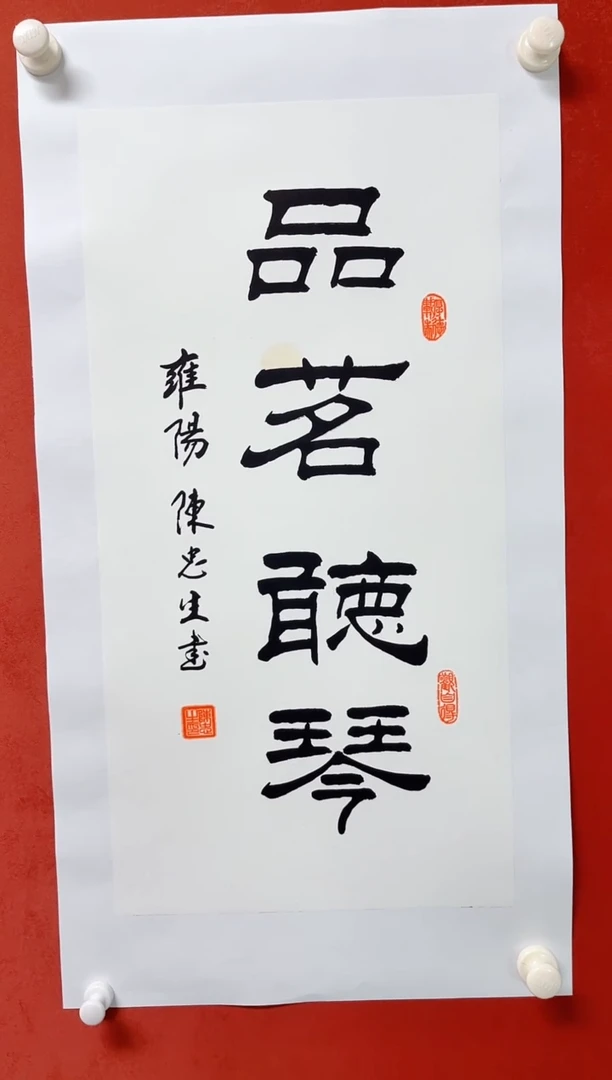 品茗聽琴
雍陽陳忠生書